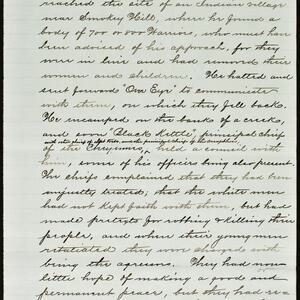 reached the site of an Indian village
near Smokey Hill, where he found a
body of 700 or 800 Warriors, who must have
been advised of his approach, for they
were in line and had removed their
women and children. He halted and
sent forward "One Eye" to communicate
with them, on which they fell back.
He encamped on the bank of a creek,
and soon "Black Kettle", principal chief
of the Cheyennes, held a council with
him, some of his officers being also present.
The chiefs complained that they had been
unjustly treated; that the white men
had not kept faith with them, but had
made pretexts for robbing & killing their
people, and when their young men
retaliated they were charged with
being the agressors. They had now
little hope of making a good and
permanent peace, but they had re-